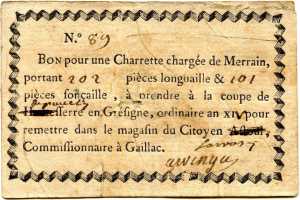 N.º 89
BON pour une Charrette chargée de Merrain,
portant 202 pièces longuaille & 101
pièces fonçaille, à prendre à la coupe de
en Grésigne, ordinaire an XIV pour
remettre dans le magasin du Citoyen
Commissionnaire à Gaillac.